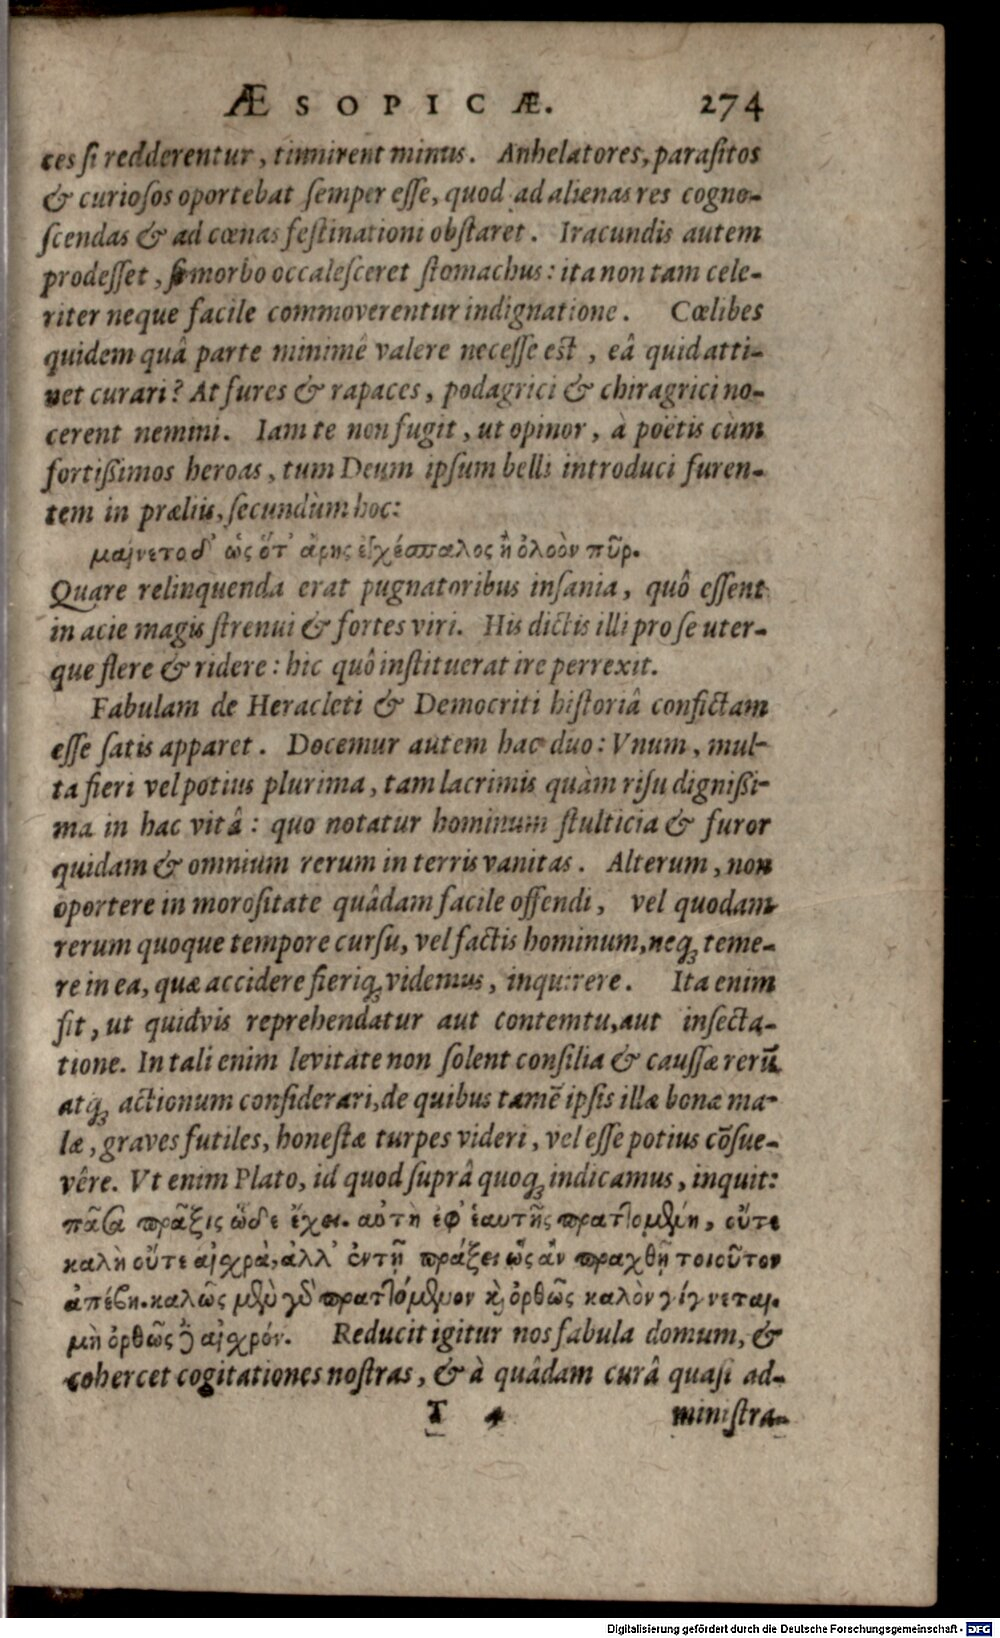 ÆSOPICÆ. 274
ces si redderentur, tinnirent minus. Anhelatores, parasitos
& curiosos oportebat semper esse, quod ad alienas res cogno-
scendas & ad cœnas festinationi obstaret. Iracundis autem
prodesset, si morbo occalesceret stomachus: ita non tam cele-
riter neque facile commoverentur indignatione. Cœlibes
quidem quâ parte minimê valere necesse est, eâ quid atti-
net curari? At fures & rapaces, podagrici & chiragrici no-
cerent nemini. Iam te non fugit, ut opinor, à poëtis cùm
fortißimos heroas, tum Deum ipsum belli introduci furen-
tem in præliis, secundùm hoc:
μαίνετο δ' ὡς ὅτ' ἄρης ἐγχέσπαλος ἢ ὀλοὸν πῦρ.
Quare relinquenda erat pugnatoribus insania, quô essent
in acie magis strenui & fortes viri. His dictis illi pro se uter-
que flere & ridere: hic quô instituerat ire perrexit.
Fabulam de Heracleti & Democriti historiâ confictam
esse satis apparet. Docemur autem hac duo: Vnum, mul-
ta fieri vel potius plurima, tam lacrimis quàm risu dignißi-
ma in hac vitâ: quo notatur hominum stulticia & furor
quidam & omnium rerum in terris vanitas. Alterum, non
oportere in morositate quâdam facile offendi, vel quodam
rerum quoque tempore cursu, vel factis hominum, neq; teme-
re in ea, quæ accidere fieriq; videmus, inquirere. Ita enim
fit, ut quidvis reprehendatur aut contemtu, aut insecta-
tione. In tali enim levitate non solent consilia & caussæ rerū
atq; actionum considerari, de quibus tamē ipsis illæ bonæ ma-
læ, graves futiles, honestæ turpes videri, vel esse potius cōsue-
vêre. Vt enim Plato, id quod suprâ quoq; indicamus, inquit:
πᾶσα πρᾶξις ὧδε ἔχει. αὐτὴ ἐφ' ἑαυτῆς πραττομένη, οὔτε
καλὴ οὔτε αἰσχρὰ, ἀλλ' ἐν τῇ πράξει ὡς ἂν πραχθῇ τοιοῦτον
ἀπέβη. καλῶς μὲν γὰρ πραττόμενον καὶ ὀρθῶς καλὸν γίγνεται.
μὴ ὀρθῶς δὲ αἰσχρόν. Reducit igitur nos fabula domum, &
cohercet cogitationes nostras, & à quâdam curâ quasi ad-
T 4 ministra-
Digitalisierung gefördert durch die Deutsche Forschungsgemeinschaft - DFG